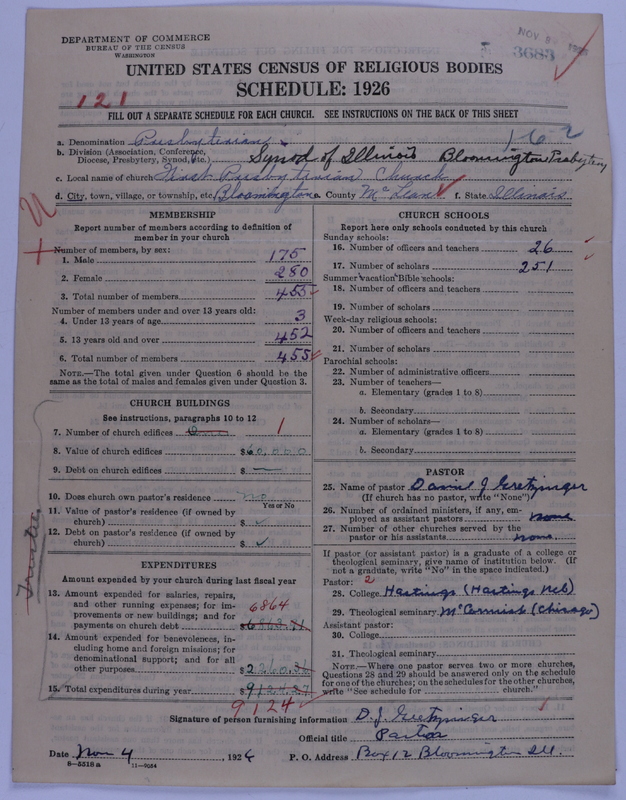 DEPARTMENT OF COMMERCE
BUREAU OF THE CENSUS
WASHINGTON
NOV 9 1926
3683
UNITED STATES CENSUS OF RELIGIOUS BODIES
SCHEDULE: 1926
121
FILL OUT A SEPARATE SCHEDULE FOR EACH CHURCH. SEE INSTRUCTIONS ON THE BACK OF THIS SHEET
162
a. Denomination Presbyterian
b. Division (Association, Conference, Diocese, Presbytery, Synod, etc.) Synod of Illinois Bloomington Presbytery
c. Local name of church First Presbyterian Church
d. City, town, village, or township, etc. Bloomington e. County McLean f. State Illinois
MEMBERSHIP
Report number of members according to definition of
member in your church
Number of members, by sex:
1. Male 175
2. Female 280
3. Total number of members 455
Number of members under and over 13 years old:
4. Under 13 years of age 3
5. 13 years old and over 452
6. Total number of members 455
NOTE.—The total given under Question 6 should be
same as the total of males and females given under Question 3.
CHURCH BUILDINGS
See instructions, paragraphs 10 to 12
7. Number of church edifices One 1
8. Value of church edifices $60,000
9. Debt on church edifices $ —
10. Does church own pastor's residence no
Yes or No
11. Value of pastor's residence (if owned by
church) $ ✓
12. Debt on pastor's residence (if owned by
church) $ ✓
EXPENDITURES
Amount expended by your church during last fiscal year
13. Amount expended for salaries, repairs,
and other running expenses; for im-
provements or new buildings; and for
payments on church debt 6864 $6863.71
14. Amount expended for benevolences, in-
cluding home and foreign missions; for
denominational support; and for all
other purposes $2260.
15. Total expenditures during year $9124.
9124
CHURCH SCHOOLS
Report here only schools conducted by this church
Sunday schools:
16. Number of officers and teachers 26
17. Number of scholars 251
Summer vacation Bible schools:
18. Number of officers and teachers
19. Number of scholars
Week-day religious schools:
20. Number of officers and teachers
21. Number of scholars
Parochial schools:
22. Number of administrative officers
23. Number of teachers—
a. Elementary (grades 1 to 8)
b. Secondary
24. Number of scholars—
a. Elementary (grades 1 to 8)
b. Secondary
PASTOR
25. Name of pastor Daniel J Gretzinger
(If church has no pastor, write "None")
26. Number of ordained ministers, if any, em-
ployed as assistant pastors none
27. Number of other churches served by the
pastor or his assistants none
If pastor (or assistant pastor) is a graduate of a college or
theological seminary, give name of institution below. (If
not a graduate, write "No" in the space indicated.)
Pastor: 2
28. College Hastings (Hastings Neb)
29. Theological seminary McCormick (Chicago)
Assistant pastor:
30. College
31. Theological seminary
NOTE.—Where one pastor serves two or more churches,
Questions 28 and 29 should be answered only on the schedule
for one of the churches; on the schedules for the other churches,
write "See schedule for church."
Signature of person furnishing information D. J. Gretzinger
Official title Pastor
Date Nov 4, 1926 P. O. Address Box 12 Bloomington Ill.
8-5518 a 11-9064